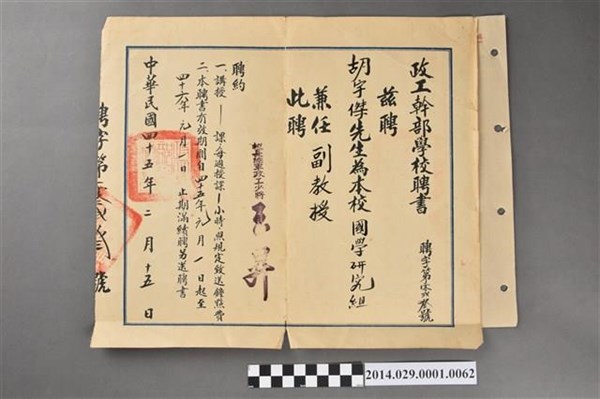 政工幹部學校聘書
聘字第零六叁號
茲聘
胡宇傑先生為本校國學研究組
兼任副教授
此聘
校長陸軍政工少將 王昇
聘約
一、講授——課每週授課—小時照規定致送鐘點費
二、本聘書有效期間自四十五年元月一日起至
四十六年元月一日止期滿續聘另送聘書
中華民國四十五年二月十五日
聘字第
號
2014.029.0001.0062